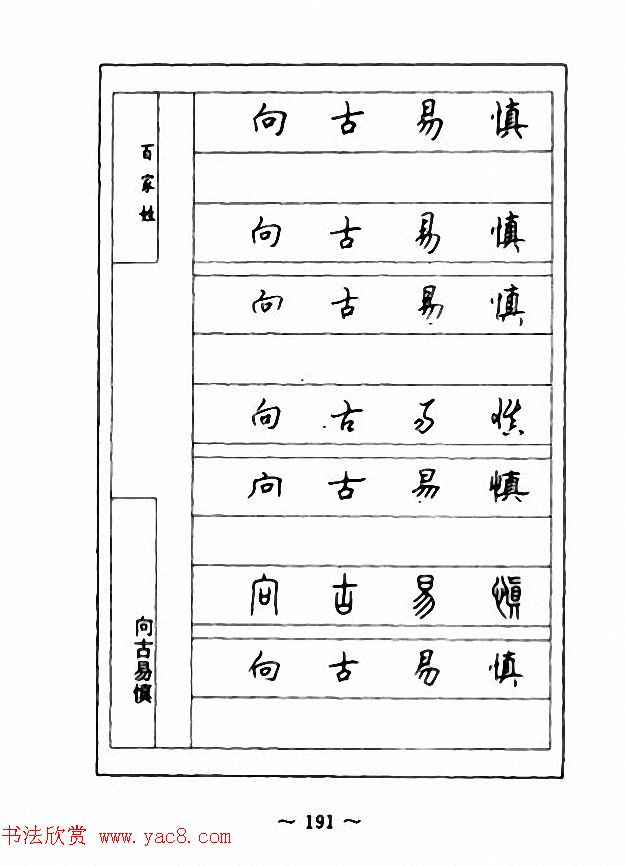 百家姓
向古易慎
向 古 易 慎
向 古 易 慎
向 古 易 慎
向 古 易 慎
向 古 易 慎
向 古 易 慎
向 古 易 慎
~ 191 ~
书法欣赏 www.yac8.com